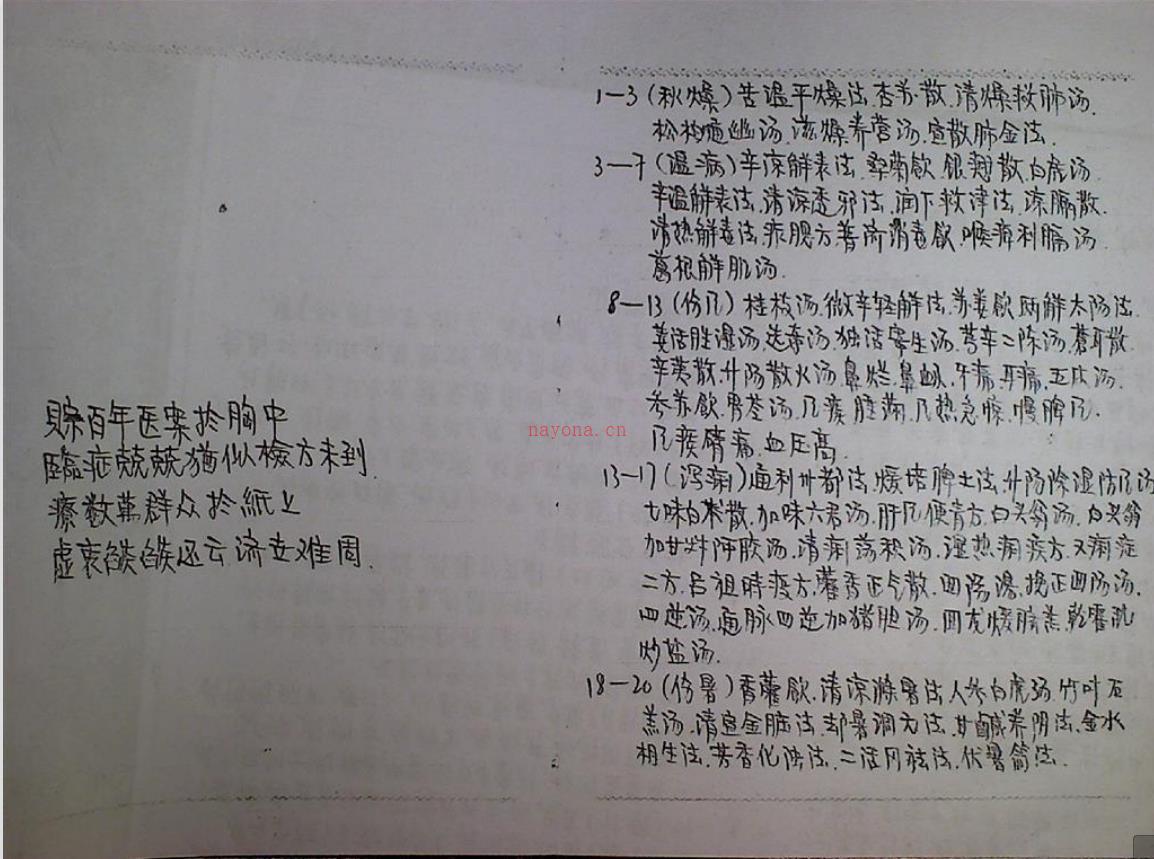 贮百年医案於胸中
臨症兢兢猶似檢方未到
療数萬群众於紙上
虚衷欿欿还云济世难周.
1—3(秋燥)苦温平燥法.杏苏散.清燥救肺汤.
松柏通幽汤.滋燥养营汤.宣散肺金法.
3—7(温病)辛凉解表法.桑菊飲.银翘散.白虎汤.
辛温解表法.清凉透邪法.润下救津法.凉膈散.
清热解毒法.痄腮方普济消毒飲.喉痹利膈汤.
葛根解肌汤.
8—13(伤风)桂枝汤.微辛轻解法.苏姜飲.两解太阳法.
羌活胜湿汤.选奇汤.独活寄生汤.芎辛二陈汤.蒼耳散.
辛荑散.升阳散火汤.鼻烂.鼻衄.牙痛.耳痛.五皮汤.
参苏飲.胃苓汤.风痰腫满.风热急惊.慢脾风.
风痰臂痛.血压高.
13—17(泻痢)通利州都法.煖培脾土法.升阳除湿防风汤
七味白术散.加味六君汤.肝风便青方.白头翁汤.白头翁
加甘草阿胶汤.清痢荡积汤.湿热痢疾方.又痢症
二方.吕祖時疫方.藿香正气散.回阳湯.挽正回阳汤.
四逆汤.通脉四逆加猪胆汤.回友煖脐羔.乾霍乱
炒盐汤.
18—20(伤暑)香薷飲.清凉滌暑法.人参白虎汤.竹叶石
羔汤.清宣金脏法.却暑调元法.甘鹹养阴法.金水
相生法.芳香化浊法.二活同祛法.伏暑简法.
nayona.cn